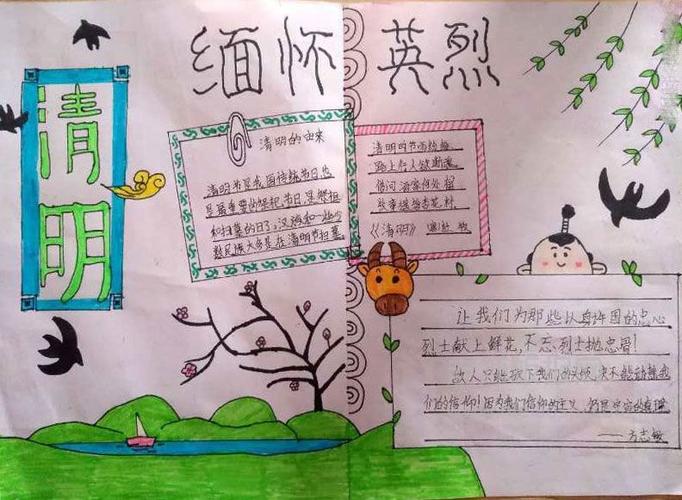 缅怀英烈
清明
清明的由来
清明节是我国传统节日,也
是最重要的祭祀节日,是祭祖
和扫墓的日子,汉族和一些少
数民族大多是在清明节扫墓
清明时节雨纷纷
路上行人欲断魂
借问酒家何处有
牧童遥指杏花村
《清明》 杜牧
让我们为那些以身许国的忠心
烈士献上鲜花,不忘烈士抛忠骨!
敌人只能砍下我们的头颅,决不能动摇我
们的信仰!因为我们信仰的主义,乃是宇宙的真理
——方志敏